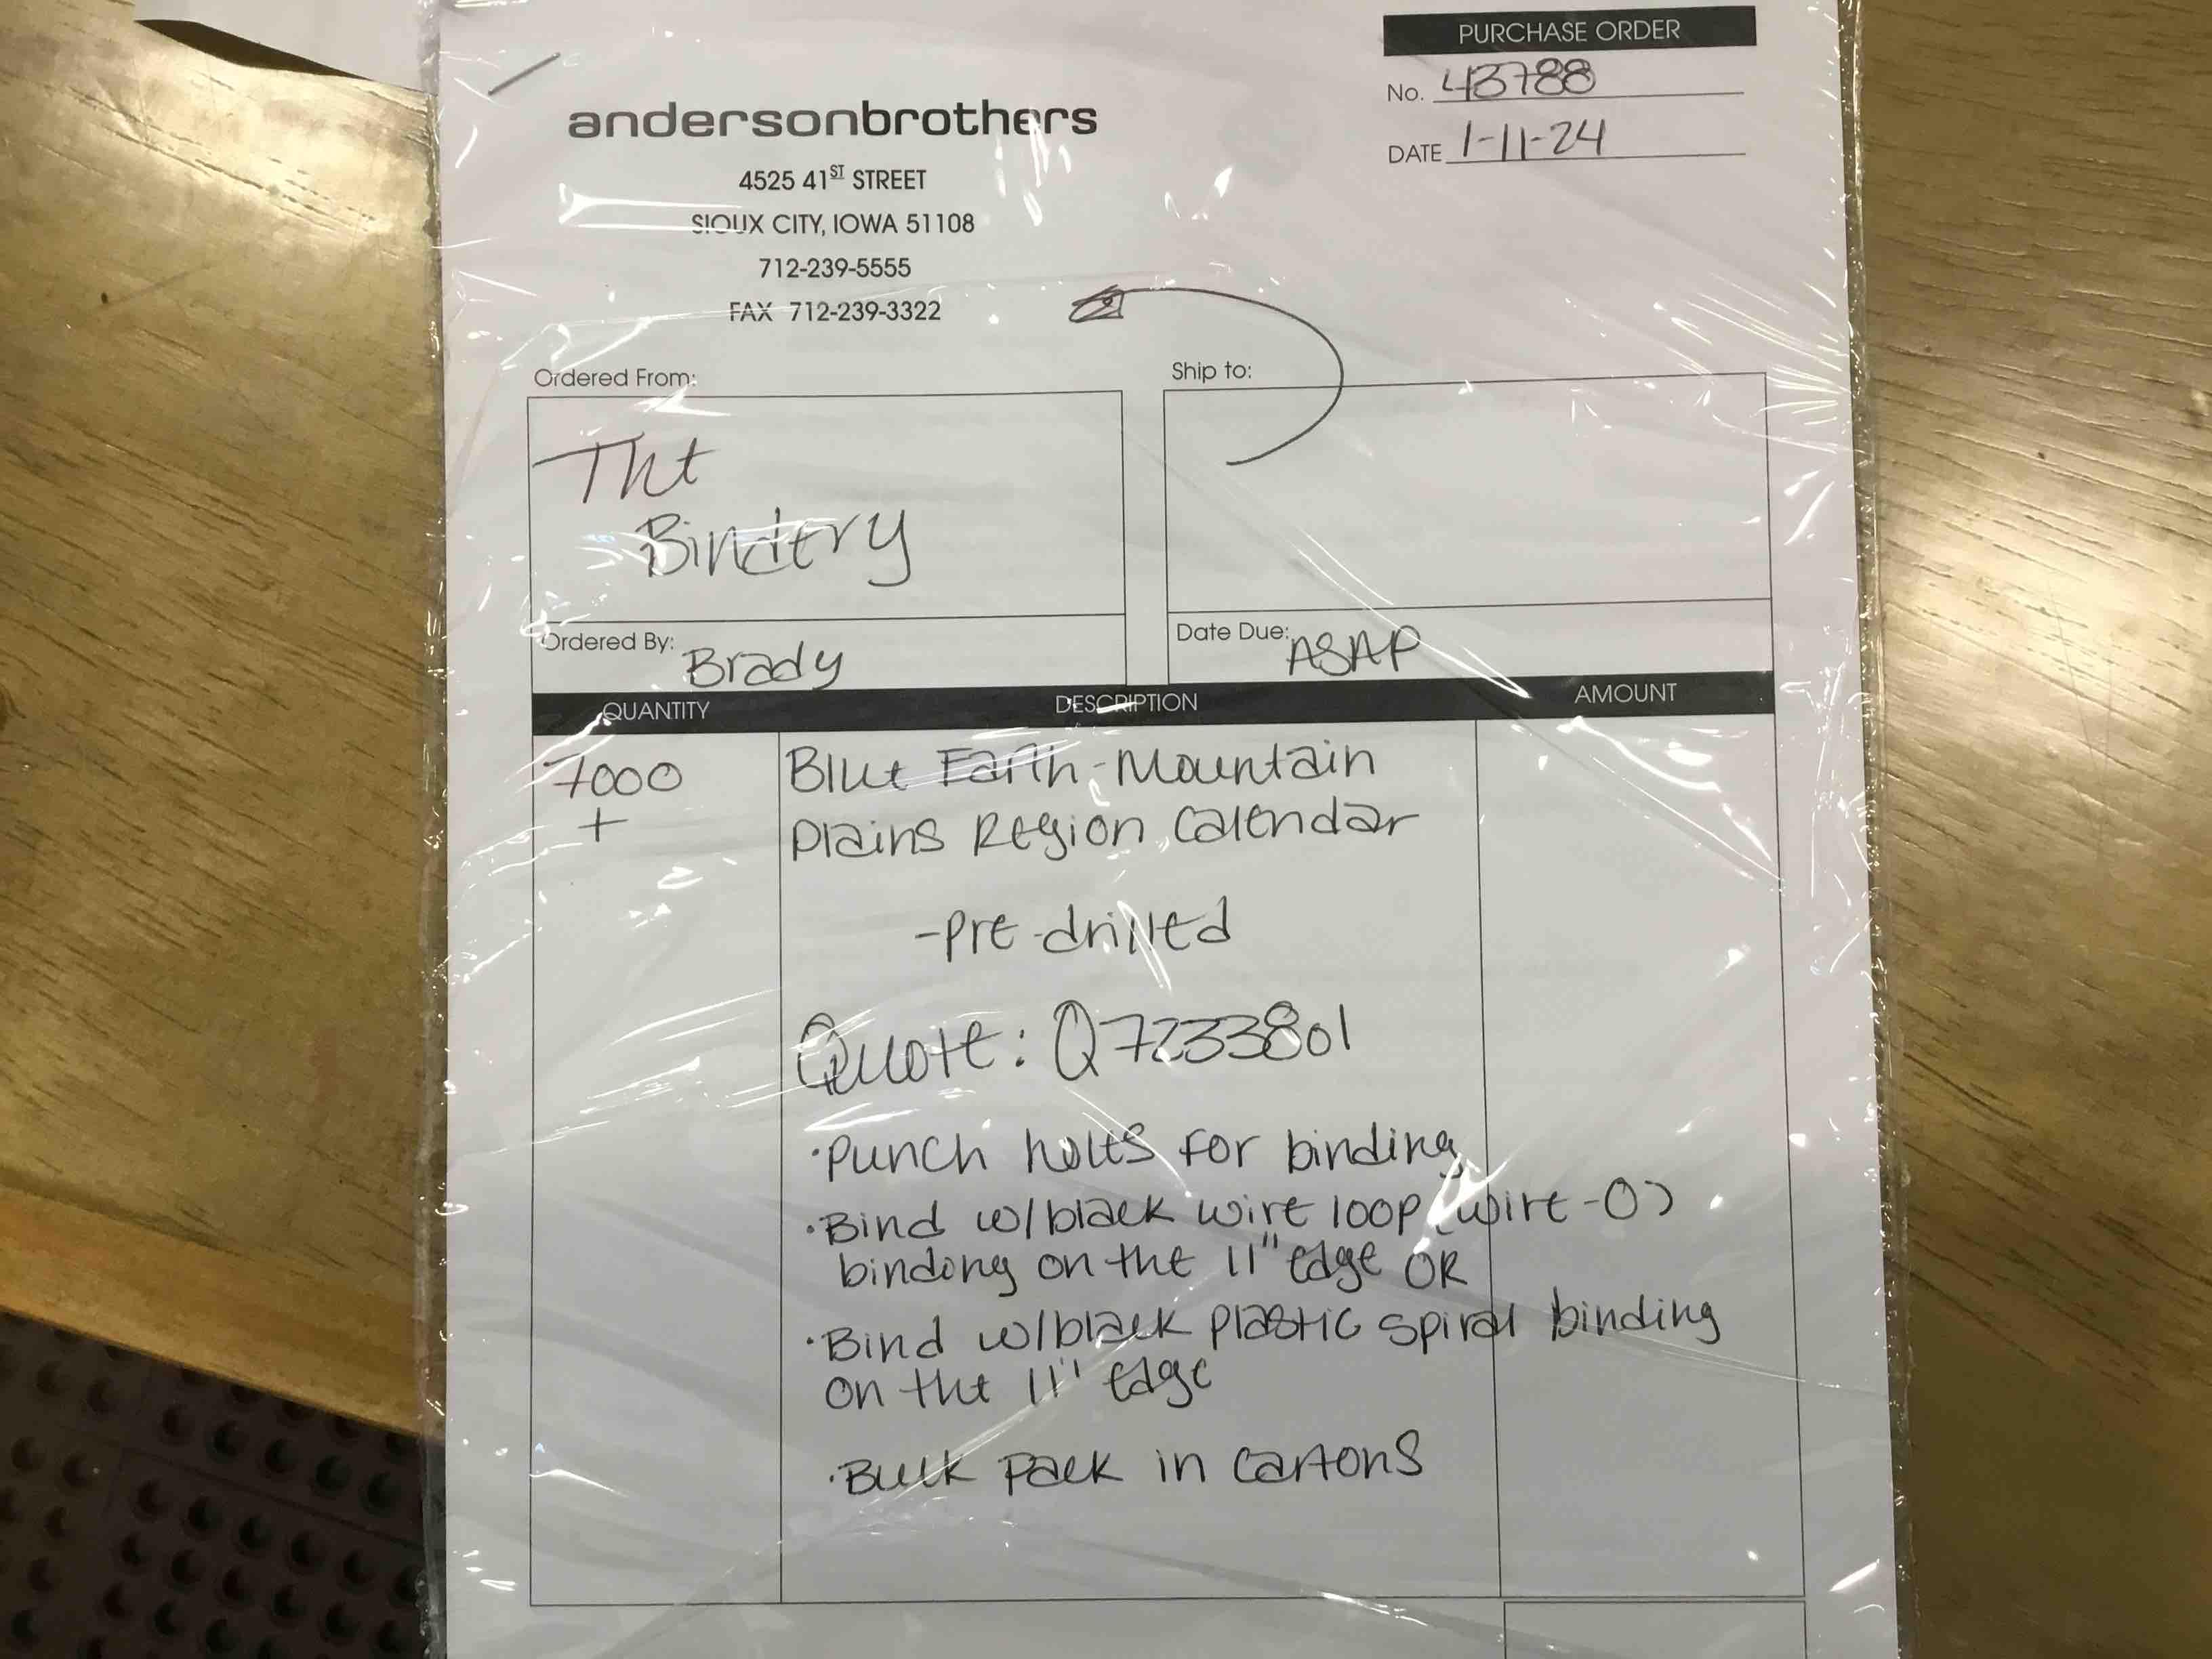 PURCHASE ORDER
No. 43788
DATE 1-11-24
andersonbrothers
4525 41ST STREET
SIOUX CITY, IOWA 51108
712-239-5555
FAX 712-239-3322
Ordered From:
The
Bindery
Ship to:
Ordered By: Brady
Date Due: ASAP
QUANTITY DESCRIPTION AMOUNT
7000 Blue Earth-Mountain
+ Plains Region Calendar
-pre-drilled
Quote: Q7233801
·Punch holes for binding
·Bind w/black wire loop (wire-O)
binding on the 11" edge OR
·Bind w/black plastic spiral binding
on the 11" edge
·Bulk pack in cartons